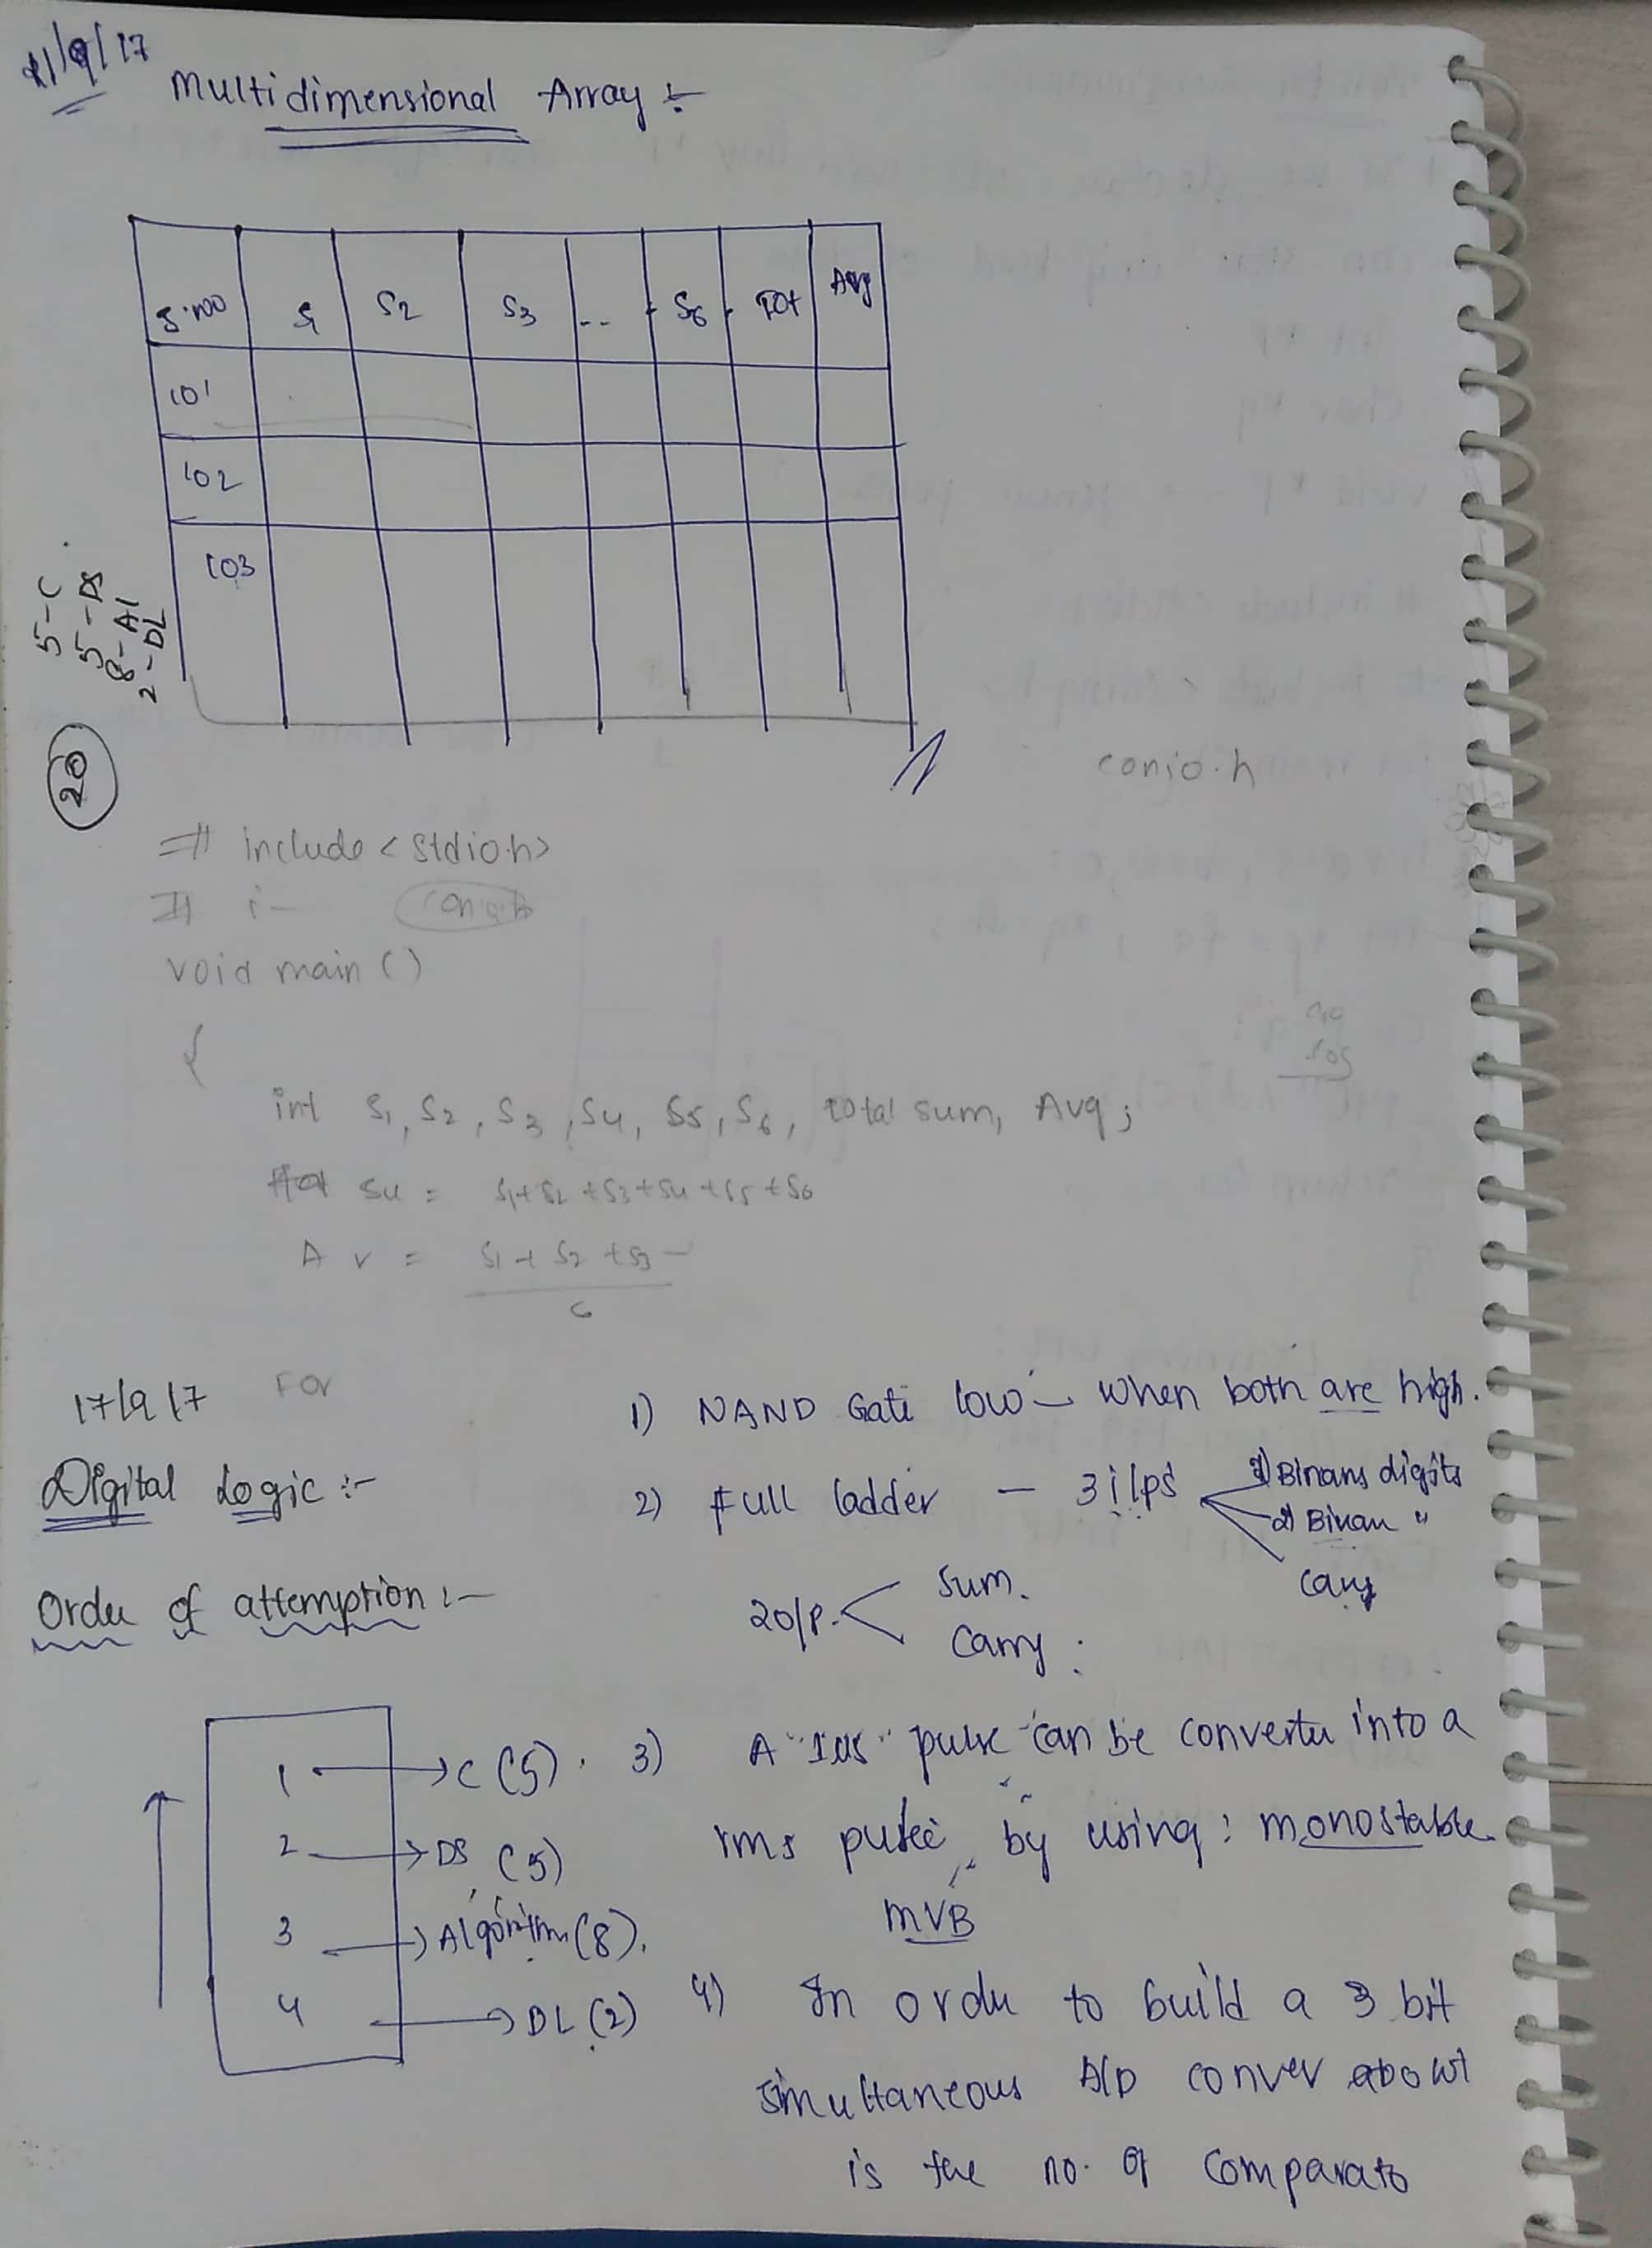 21/9/17
Multidimensional Array :-
S.no S1 S2 S3 -- S6 TOT Avg
101
102
103
5-C
5-DS
8-Al
2-DL
20
conio.h
# include <stdio.h>
# i— conio.h
void main ()
{
int S1, S2, S3, S4, S5, S6, total sum, Avg;
su = S1+S2+S3+S4+S5+S6
Av = S1+S2+S3 —
6
For
17/9/17
Digital Logic :-
Order of attemption :-
1 → C (5).
2 → DS (5)
3 → Algorithm (8).
4 → DL (2)
1) NAND Gate low — when both are high.
2) Full ladder — 3 i/ps
1) Binary digits
2) Binary "
carry
2 o/p. < Sum.
Carry :
3) A "1us" pulse can be converte into a
1ms pulse, by using : monostable.
MVB
4) In order to build a 3 bit
simultaneous A/D conver about
is the no. of comparato